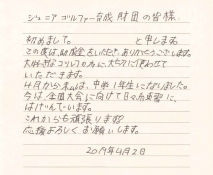 ジュニアゴルファー育成財団の皆様
初めまして。 と申します。
この度は、助成金をいただき、ありがとうございます。
大好きなゴルフのために、大切に使わせて
いただきます。
4月から私は、中学1年生になりました。
今は、全国大会に向けて日々練習に
はげんでいます。
これからも頑張ります!
応援よろしくお願いします。
2019年4月2日